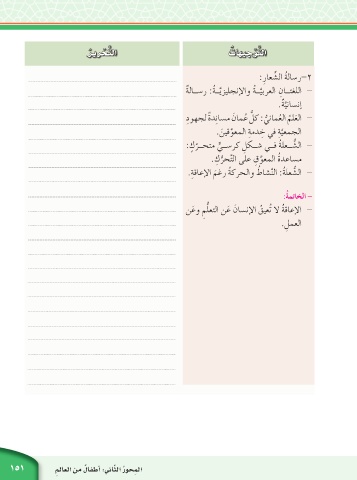 التَّوْجيهاتُ
التَّحْريرُ
٢-رسالةُ الشِّعارِ:
– اللغتــانِ العربيّــةُ والإنجليزيّــةُ: رســالةٌ
إنسانيّةٌ.
– العَلَمُ العُمانيُّ: كلُّ عُمانَ مسانِدةٌ لجهودِ
الجمعيّةِ في خدمةِ المعوَّقينَ.
– الشُّــعلةُ فــي شــكلِ كرســيٍّ متحــرّكٍ:
مساعدةُ المعوَّقِ على التّحرُّكِ.
– الشُّعلةُ: النّشاطُ والحركةُ رغمَ الإعاقةِ.
– الخاتمةُ:
– الإعاقةُ لا تُعيقُ الإنسانَ عَنِ التعلُّمِ وعَنِ
العملِ.
المحورُ الثّاني: أطفالٌ من العالمِ
١٥١